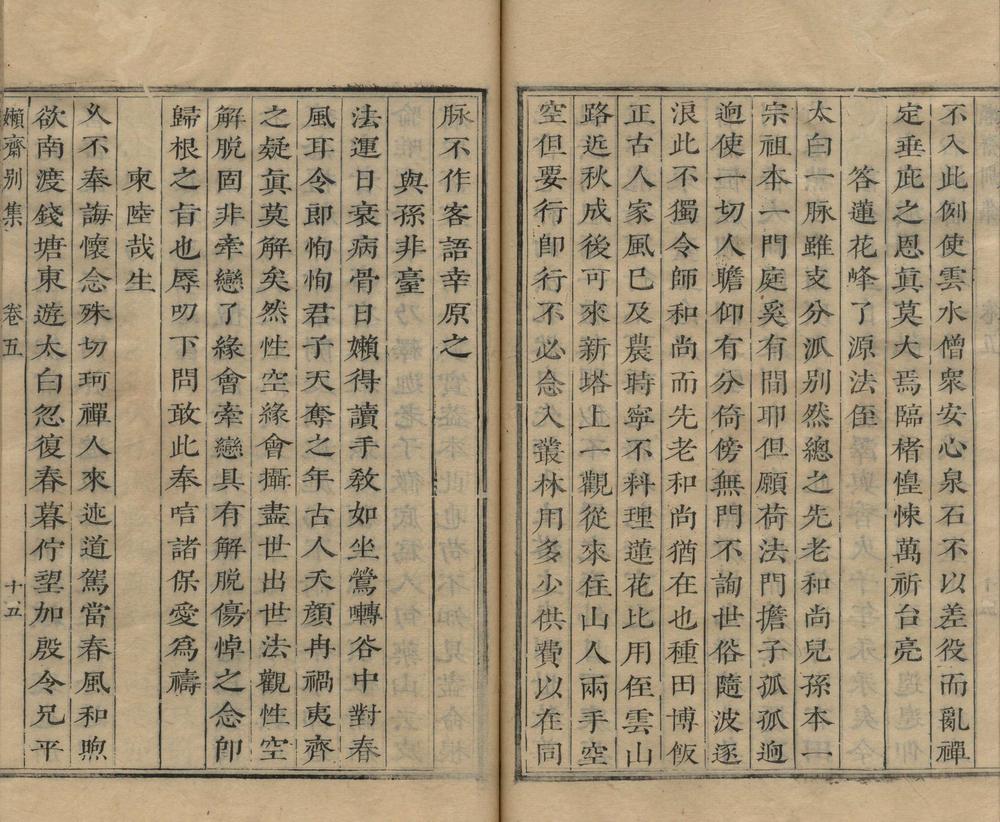 不入此例使雲水僧衆安心泉石不以差役而亂禪
定垂庇之恩眞莫大焉臨楮惶悚萬祈台亮
答蓮花峰了源法侄
太白一脉雖支分派别然總之先老和尚兒孫本一
宗祖本一門庭奚有間耶但願荷法門擔子孤孤迥
迥使一切人瞻仰有分倚傍無門不詢世俗隨波逐
浪此不獨令師和尚而先老和尚猶在也種田博飯
正古人家風巳及農時寧不料理蓮花比用侄雲山
路近秋成後可來新塔上一觀從來住山人兩手空
空但要行卽行不必念入叢林用多少供費以在同
脉不作客語幸原之
與孫非臺
法運日衰病骨日嬾得讀手敎如坐鶯囀谷中對春
風耳令郎恂恂君子天奪之年古人夭顔冉禍夷齊
之疑眞莫解矣然性空緣會攝盡世出世法觀性空
解脱固非牽戀了緣會牽戀具有解脱傷悼之念卽
歸根之旨也辱叨下問敢此奉唁諸保愛爲禱
柬陸哉生
乆不奉誨懷念殊切珂禪人來迯道駕當春風和煦
欲南渡錢塘東遊太白忽復春暮佇望加殷令兄平
嬾齋别集 卷五 十五